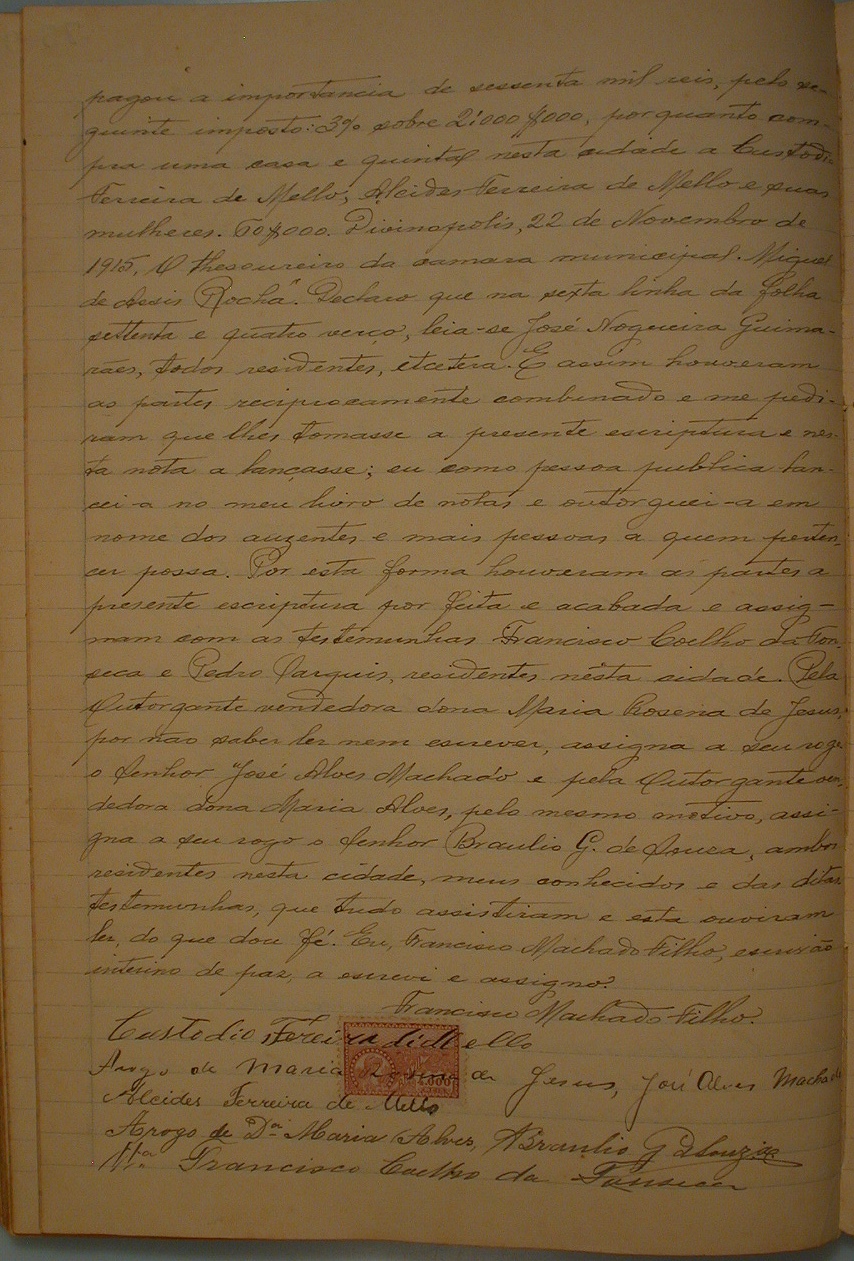 pagou a importancia de sessenta mil reis, pelo se-
guinte imposto: 3% sobre 2:000$000, porquanto com-
pra uma casa e quintal nesta cidade a Custodio
Ferreira de Mello, Alcides Ferreira de Mello e suas
mulheres. 60$000. Divinopolis, 22 de Novembro de
1915, O thesoureiro da camara municipal. Miguel
de Assis Rocha". Declaro que na sexta linha da folha
settenta e quatro verço, leia-se José Nogueira Guima-
rães, todos residentes, etcetera. E assim houveram
as partes reciprocamente combinado e me pedi-
ram que lhes tomasse a presente escriptura e nes-
ta nota a lançasse; eu como pessoa publica lan-
cei-a no meu livro de notas e outorguei-a em
nome dos auzentes e mais pessoas a quem perten-
cer possa. Por esta forma houveram as partes a
presente escriptura por feita e acabada e assig-
nam com as testemunhas Francisco Coelho da Fon-
seca e Pedro residentes nésta cidade. Pela
Outorgante vendedora dona Maria Rosena de Jesus,
por não saber ler nem escrever, assigna a seu rogo
o Senhor José Alves Machado e pela Outorgante ven-
dedora dona Maria Alves, pelo mesmo motivo, assi-
gna a seu rogo o Senhor Braulio G. de Souza, ambos
residentes nesta cidade, meus conhecidos e das ditas
testemunhas, que tudo assistiram e esta ouviram
ler, do que dou fé. Eu, Francisco Machado Filho, escrivão
interino de paz, a escrevi e assigno.
Francisco Machado Filho.
Custodio Fereira di Mello
Arogo de Maria de Jesus, José Alves Machado
Alcides Ferreira de Mello
Arogo de Dª Maria Alves, Braulio G DSouza
Ttª Francisco Coelho da Fonseca